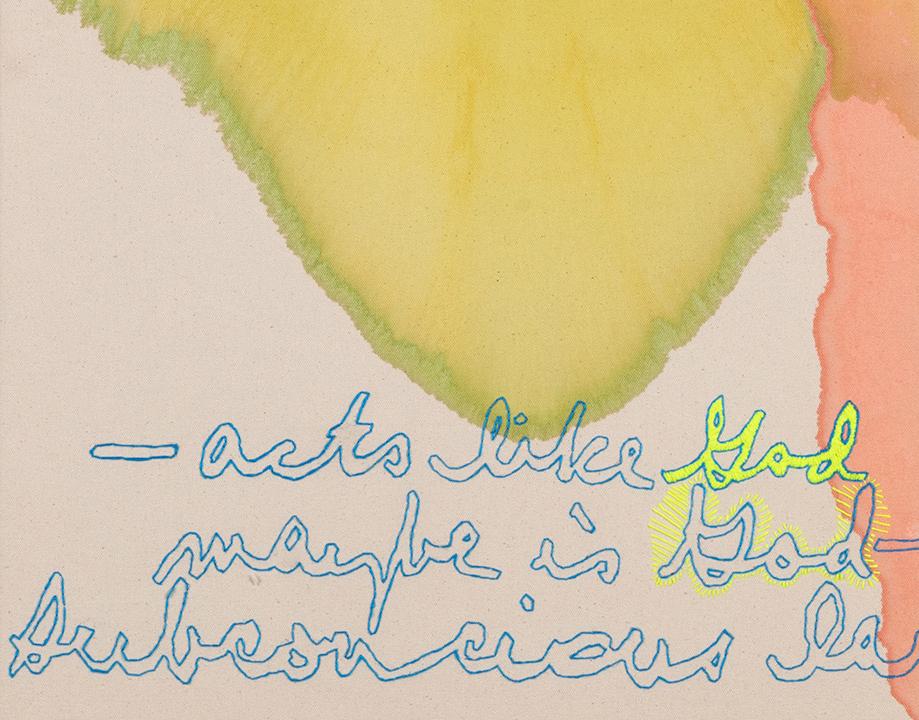 — acts like God
maybe is God —
Subconscious la